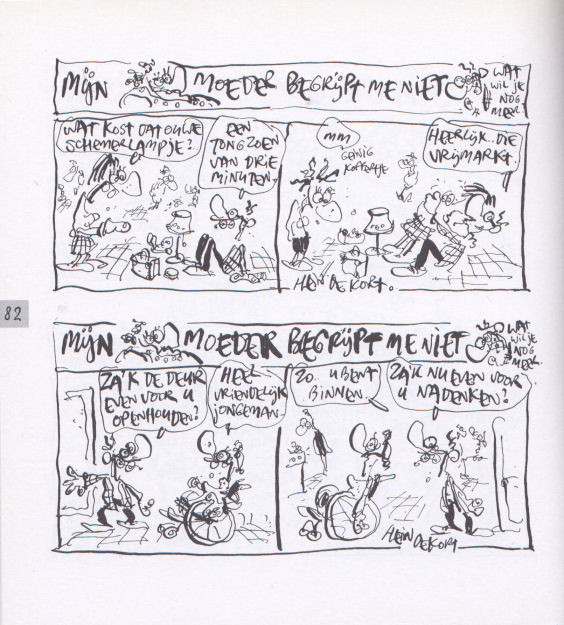 MIJN MOEDER BEGRIJPT ME NIET
WAT
WIL JE
NOG
MEER
WAT KOST DAT OUWE
SCHEMERLAMPJE?
EEN
TONGZOEN
VAN DRIE
MINUTEN.
MM
GEINIG
HEERLIJK.. DIE
VRIJMARKT.
HEIN DE KORT.
82
MIJN MOEDER BEGRIJPT ME NIET
WAT
WIL JE
NOG
MEER
ZA'K DE DEUR
EVEN VOOR U
OPENHOUDEN?
HEEL
VRIENDELIJK
JONGEMAN.
ZO.. U BENT
BINNEN.
ZA'K NU EVEN VOOR
U NADENKEN?
HEIN DE KORT